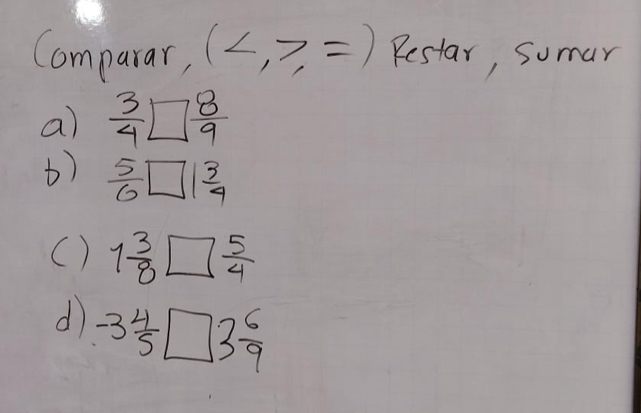 Comparar, (<, >, =) Restar, sumar
a) 3/4 □ 8/9
b) 5/6 □ 1 3/4
c) 1 3/8 □ 5/4
d) -3 4/5 □ 3 6/9